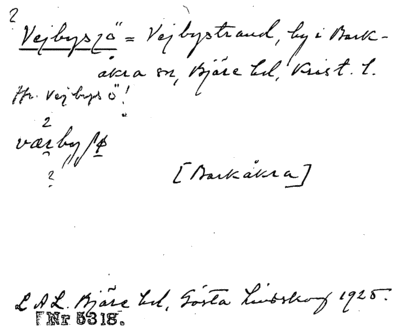 ?
Vejbysjö = Vejbystrand, by i Bark-
åkra sn, Bjäre hd, Krist. l.
Hr. Vejbysö!
2
værbyʃø
?
[Barkåkra]
L A L. Bjäre hd, Gösta Lindskog 1925.
Nr 5318.